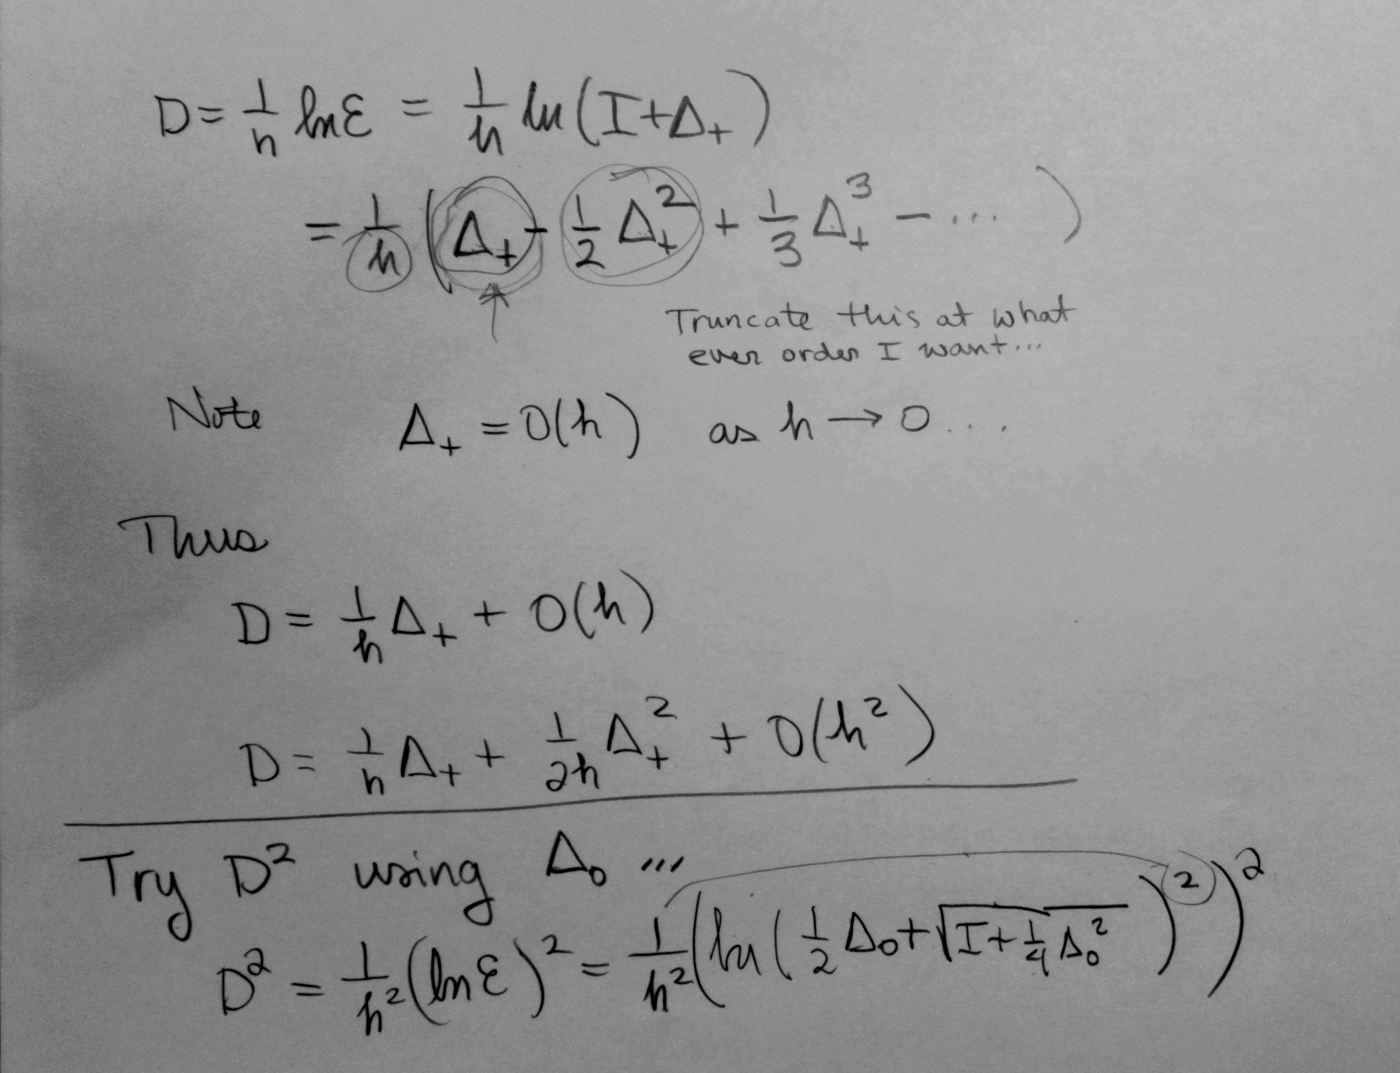 D = 1/h ln ℰ = 1/h ln(I+Δ₊)
= 1/h (Δ₊ - 1/2 Δ₊² + 1/3 Δ₊³ - ... )
Truncate this at what
ever order I want...
Note Δ₊ = O(h) as h → 0 ....
Thus
D = 1/h Δ₊ + O(h)
D = 1/h Δ₊ + 1/2h Δ₊² + O(h²)
Try D² using Δ₀ ...
D² = 1/h² (ln ℰ)² = 1/h² (ln(1/2 Δ₀ + √(I + 1/4 Δ₀²))²)²